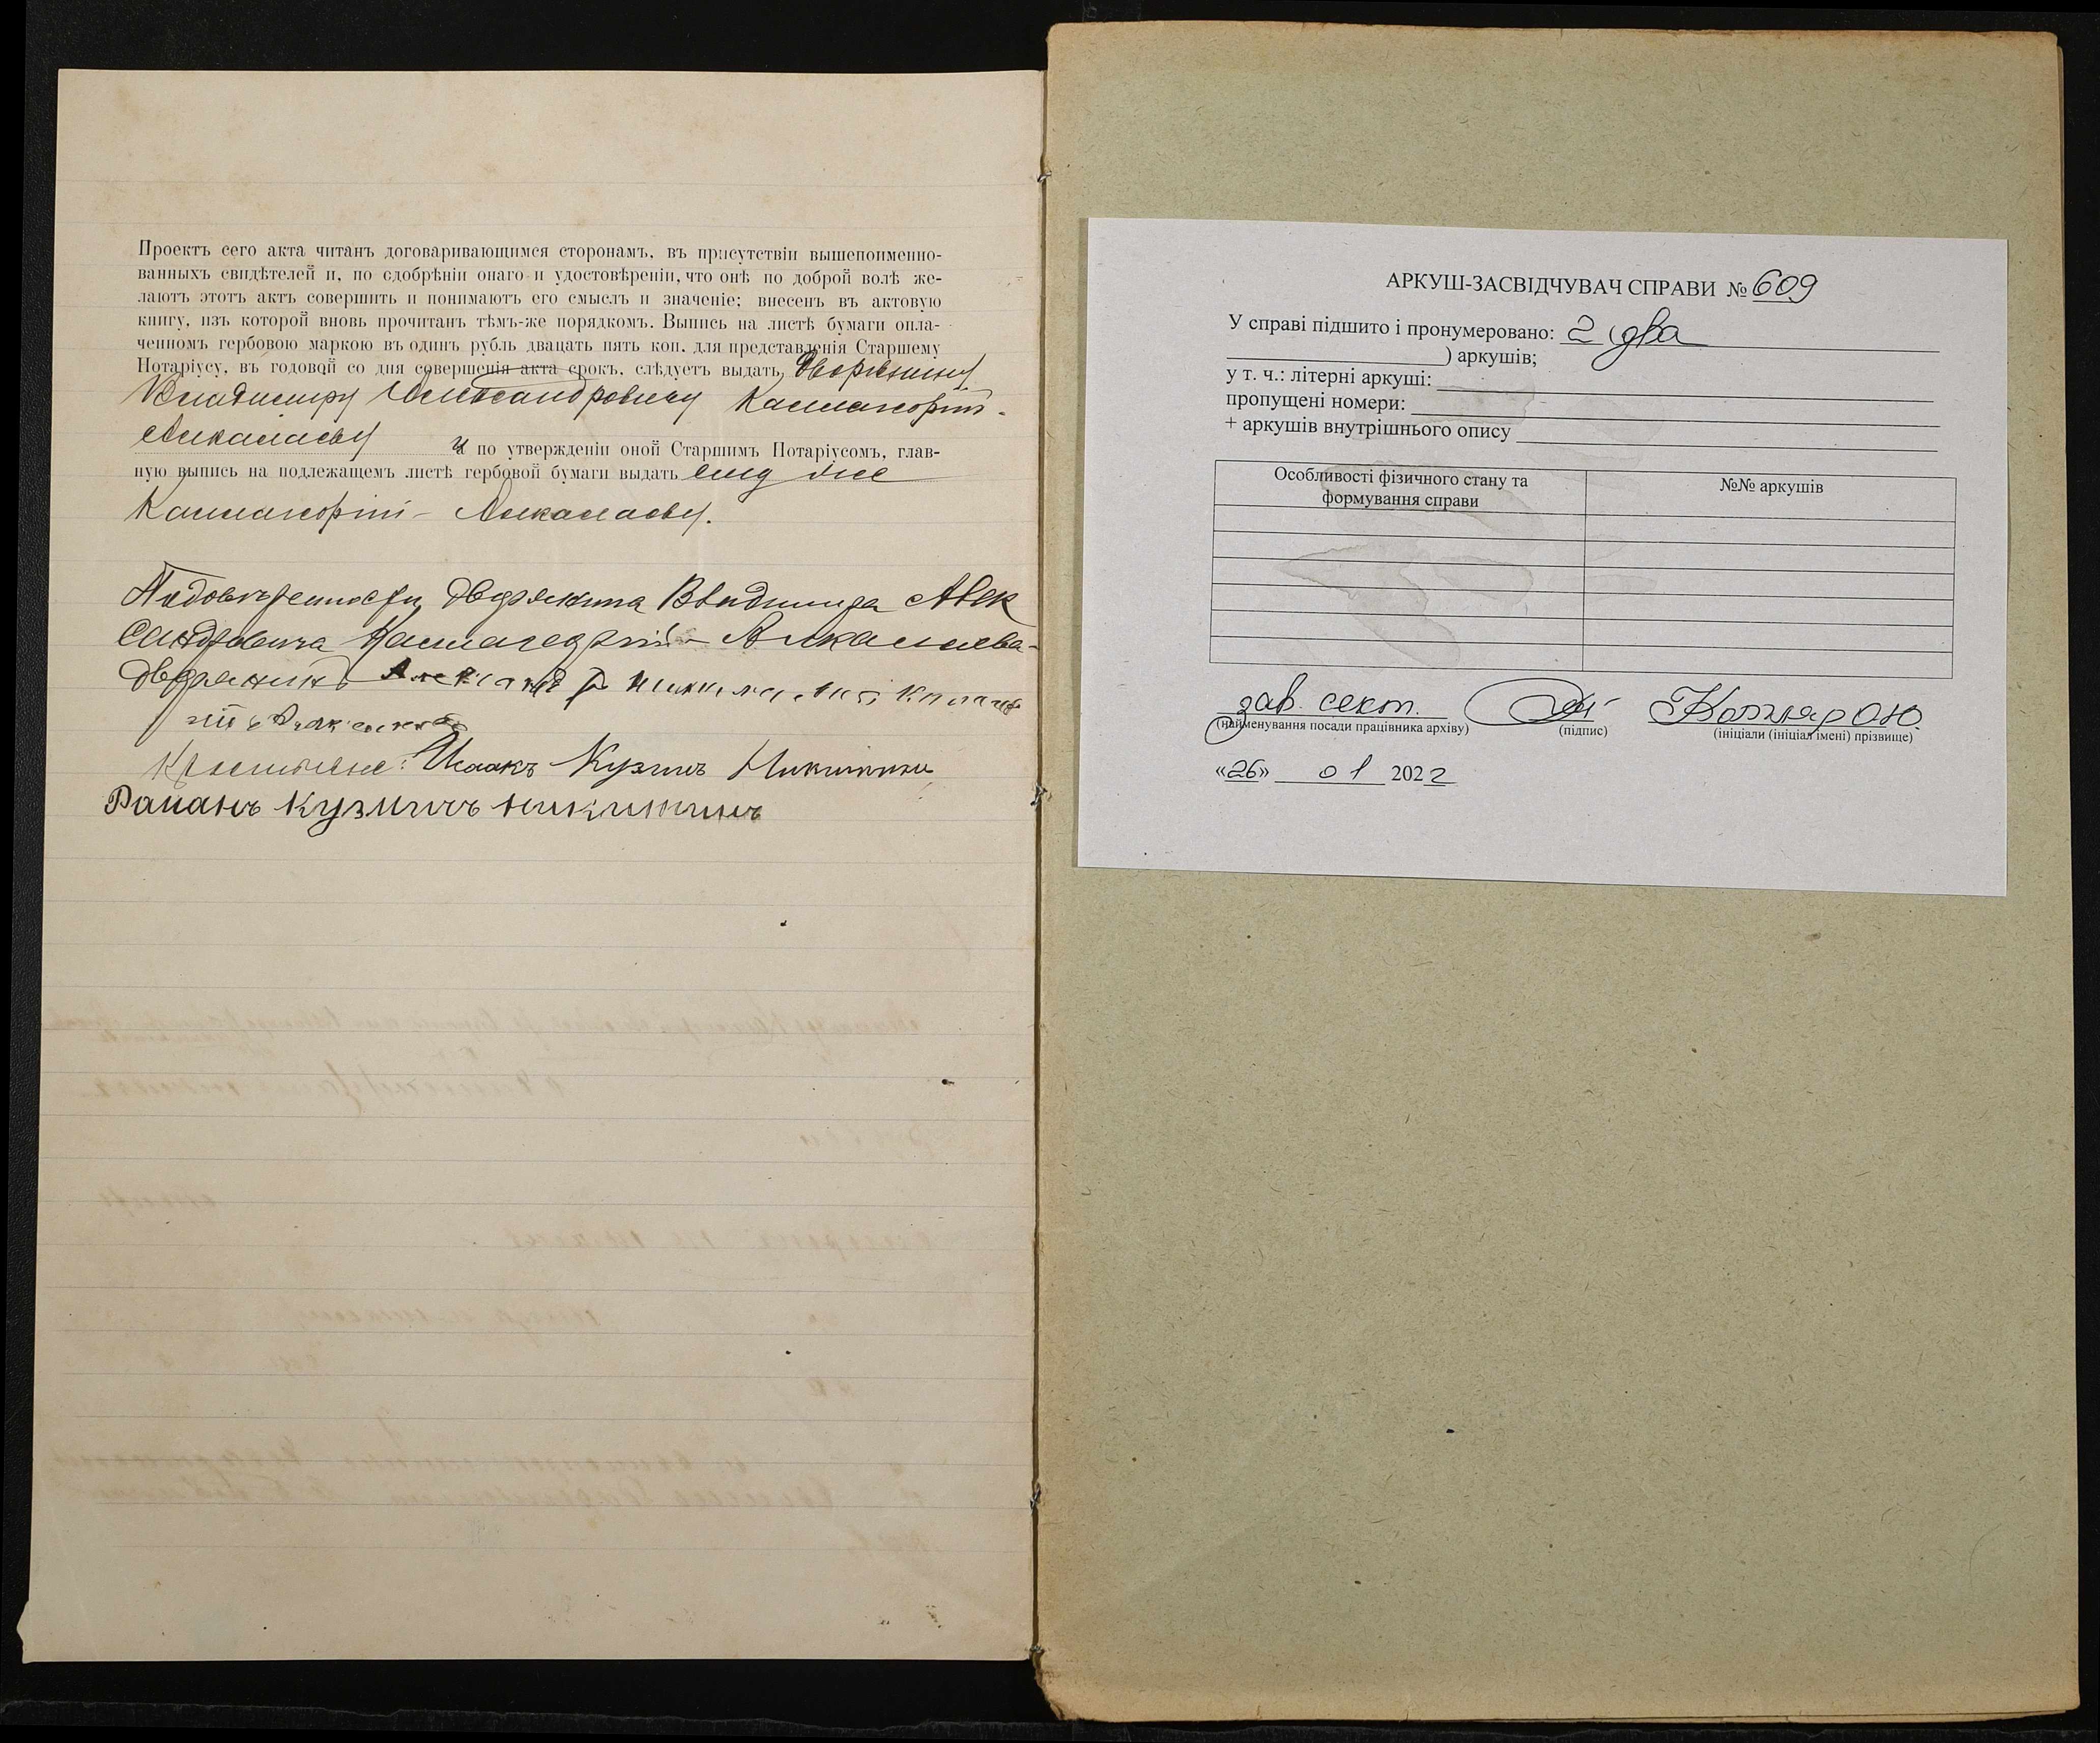 Проектъ сего акта читанъ договаривающимся сторонамъ, въ присутствіи вышепоименно-
ванныхъ свидѣтелей и, по сдобрѣніи онаго и удостовѣреніи, что онѣ по доброй волѣ же-
лаютъ этотъ актъ совершить и понимаютъ его смыслъ и значеніе; внесенъ въ актовую
книгу, изъ которой вновь прочитанъ тѣмъ-же порядкомъ. Выпись на листѣ бумаги опла-
ченномъ гербовою маркою въ одинъ рубль двацать пять коп. для представленія Старшему
Нотаріусу, въ годовой со дня совершенія акта срокъ, слѣдуетъ выдать, Дворянину
Владиміру Александровичу
и по утвержденіи оной Старшимъ Нотаріусомъ, глав-
ную выпись на подлежащемъ листѣ гербовой бумаги выдать ему же
По довѣренности дворянина Владимира Алек
сандровича
дворянинъ
Крестьяне: Исаакъ Кузминъ Никитинъ,
Раманъ Кузмичъ Никитинъ
АРКУШ-ЗАСВІДЧУВАЧ СПРАВИ № 609
У справі підшито і пронумеровано: 2 (два
) аркушів;
у т. ч.: літерні аркуші:
пропущені номери:
+ аркушів внутрішнього опису
Особливості фізичного стану та
формування справи
№№ аркушів
зав. сект.
(найменування посади працівника архіву) (підпис) (ініціали (ініціал імені) прізвище)
«26» 01 2022